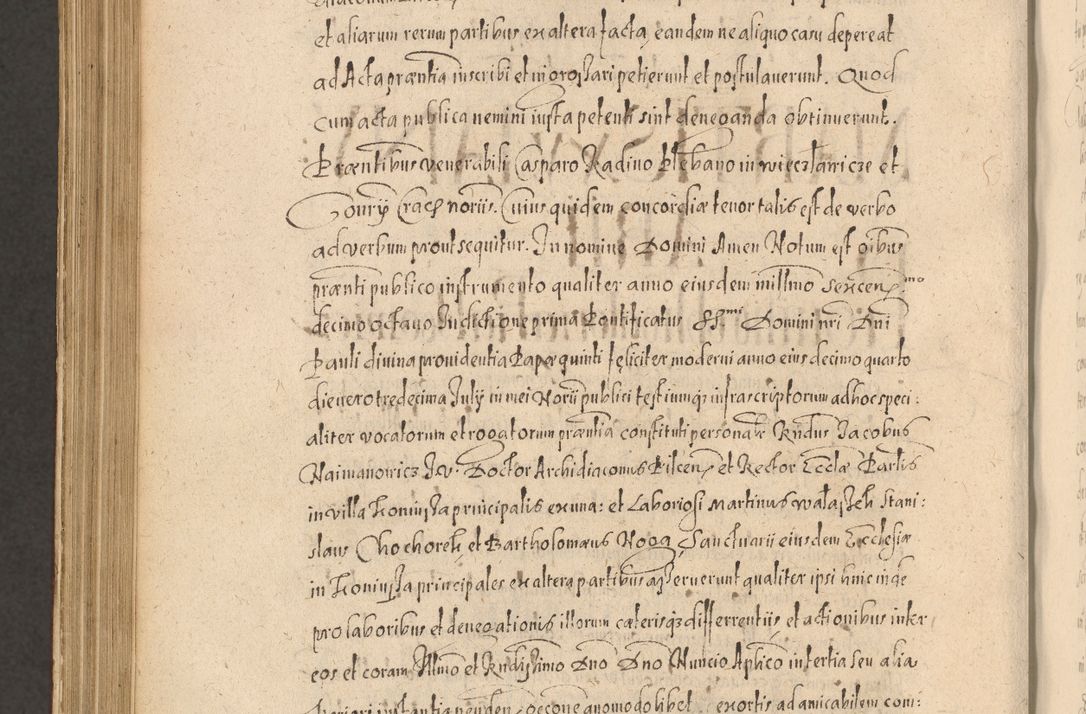 et aliarum rerum partibus ex altera facta, eandem ne aliquo casu depereat
ad Acta præntia inscribi et ingrossari petierunt et postulaverunt. Quod
cum acta publica nemini iusta petenti sint deneganda obtinuerunt.
Præntibus venerabili Casparo Radino Plebano in wieczławicze et
Conry Crac notriis. Cuius quidem concordiæ tenor talis est de verbo
ad verbum prout sequitur. In nomine Domini Amen Notum est oibus
prænti publico instrumento qualiter anno eiusdem millmo Sexcen.mo
decimo octavo Indictione prima Pontificatus SS.mi Domini nri Dni
Pauli divina providentia Papæ quinti feliciter moderni anno eius decimo quarto
die vero tredecima July in mei Norii publici testiumq; infrascriptorum ad hoc speci:
aliter vocatorum et rogatorum præntia constituti personalr Rndus Jacobus
Naimanowicz I.V. Doctor Archidiaconus Pilcen et Rector Ecclæ Parlis
in villa Koniusza principalis ex una: et Laboriosi Martinus Walaszek Stani:
slaus Chochorek et Bartholomæus Noga, Sanctuarii eiusdem Ecclesiæ
in Koniusza principales ex altera partibus asseruerunt qualiter ipsi hinc inde
pro laboribus et denegationis illorum cæterisq; differrentiis et actionibus inter
eos et coram Illmo et Rndissimo Dno Dno Nuncio Aplico in tertia seu alia